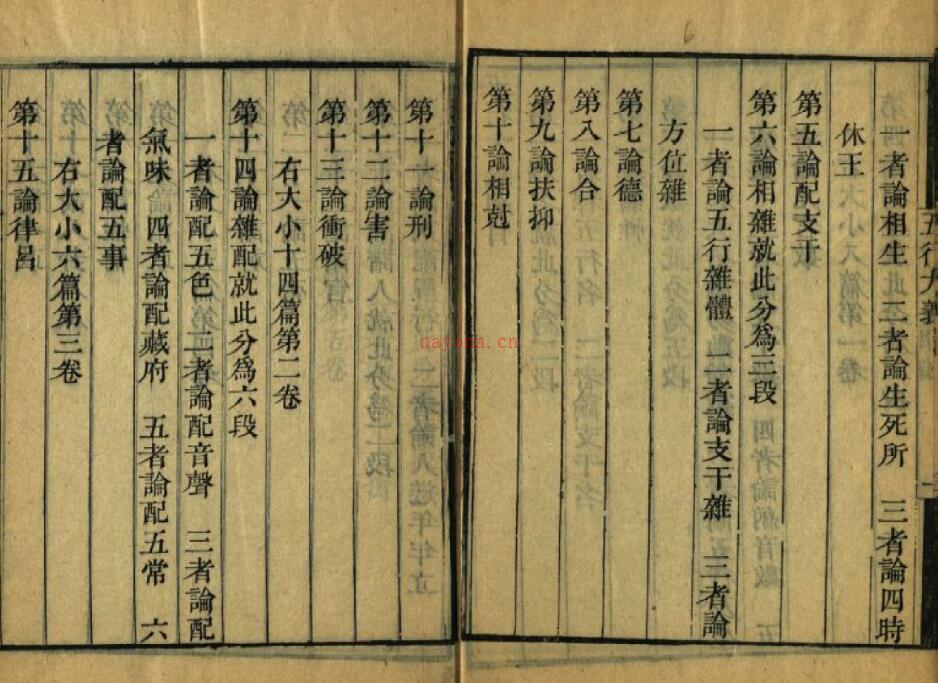 一者論相生　二者論生死所　三者論四時
休王
第五論配支干
第六論相雜就此分爲三段
一者論五行雜體　二者論支干雜　三者論
方位雜
第七論德
第八論合
第九論扶抑
第十論相尅
第十一論刑
第十二論害
第十三論衝破
右大小十四篇第二卷
第十四論雜配就此分爲六段
一者論配五色　二者論配音聲　三者論配
氣味　四者論配藏府　五者論配五常　六
者論配五事
右大小六篇第三卷
第十五論律呂
五行大義
nayona.cn